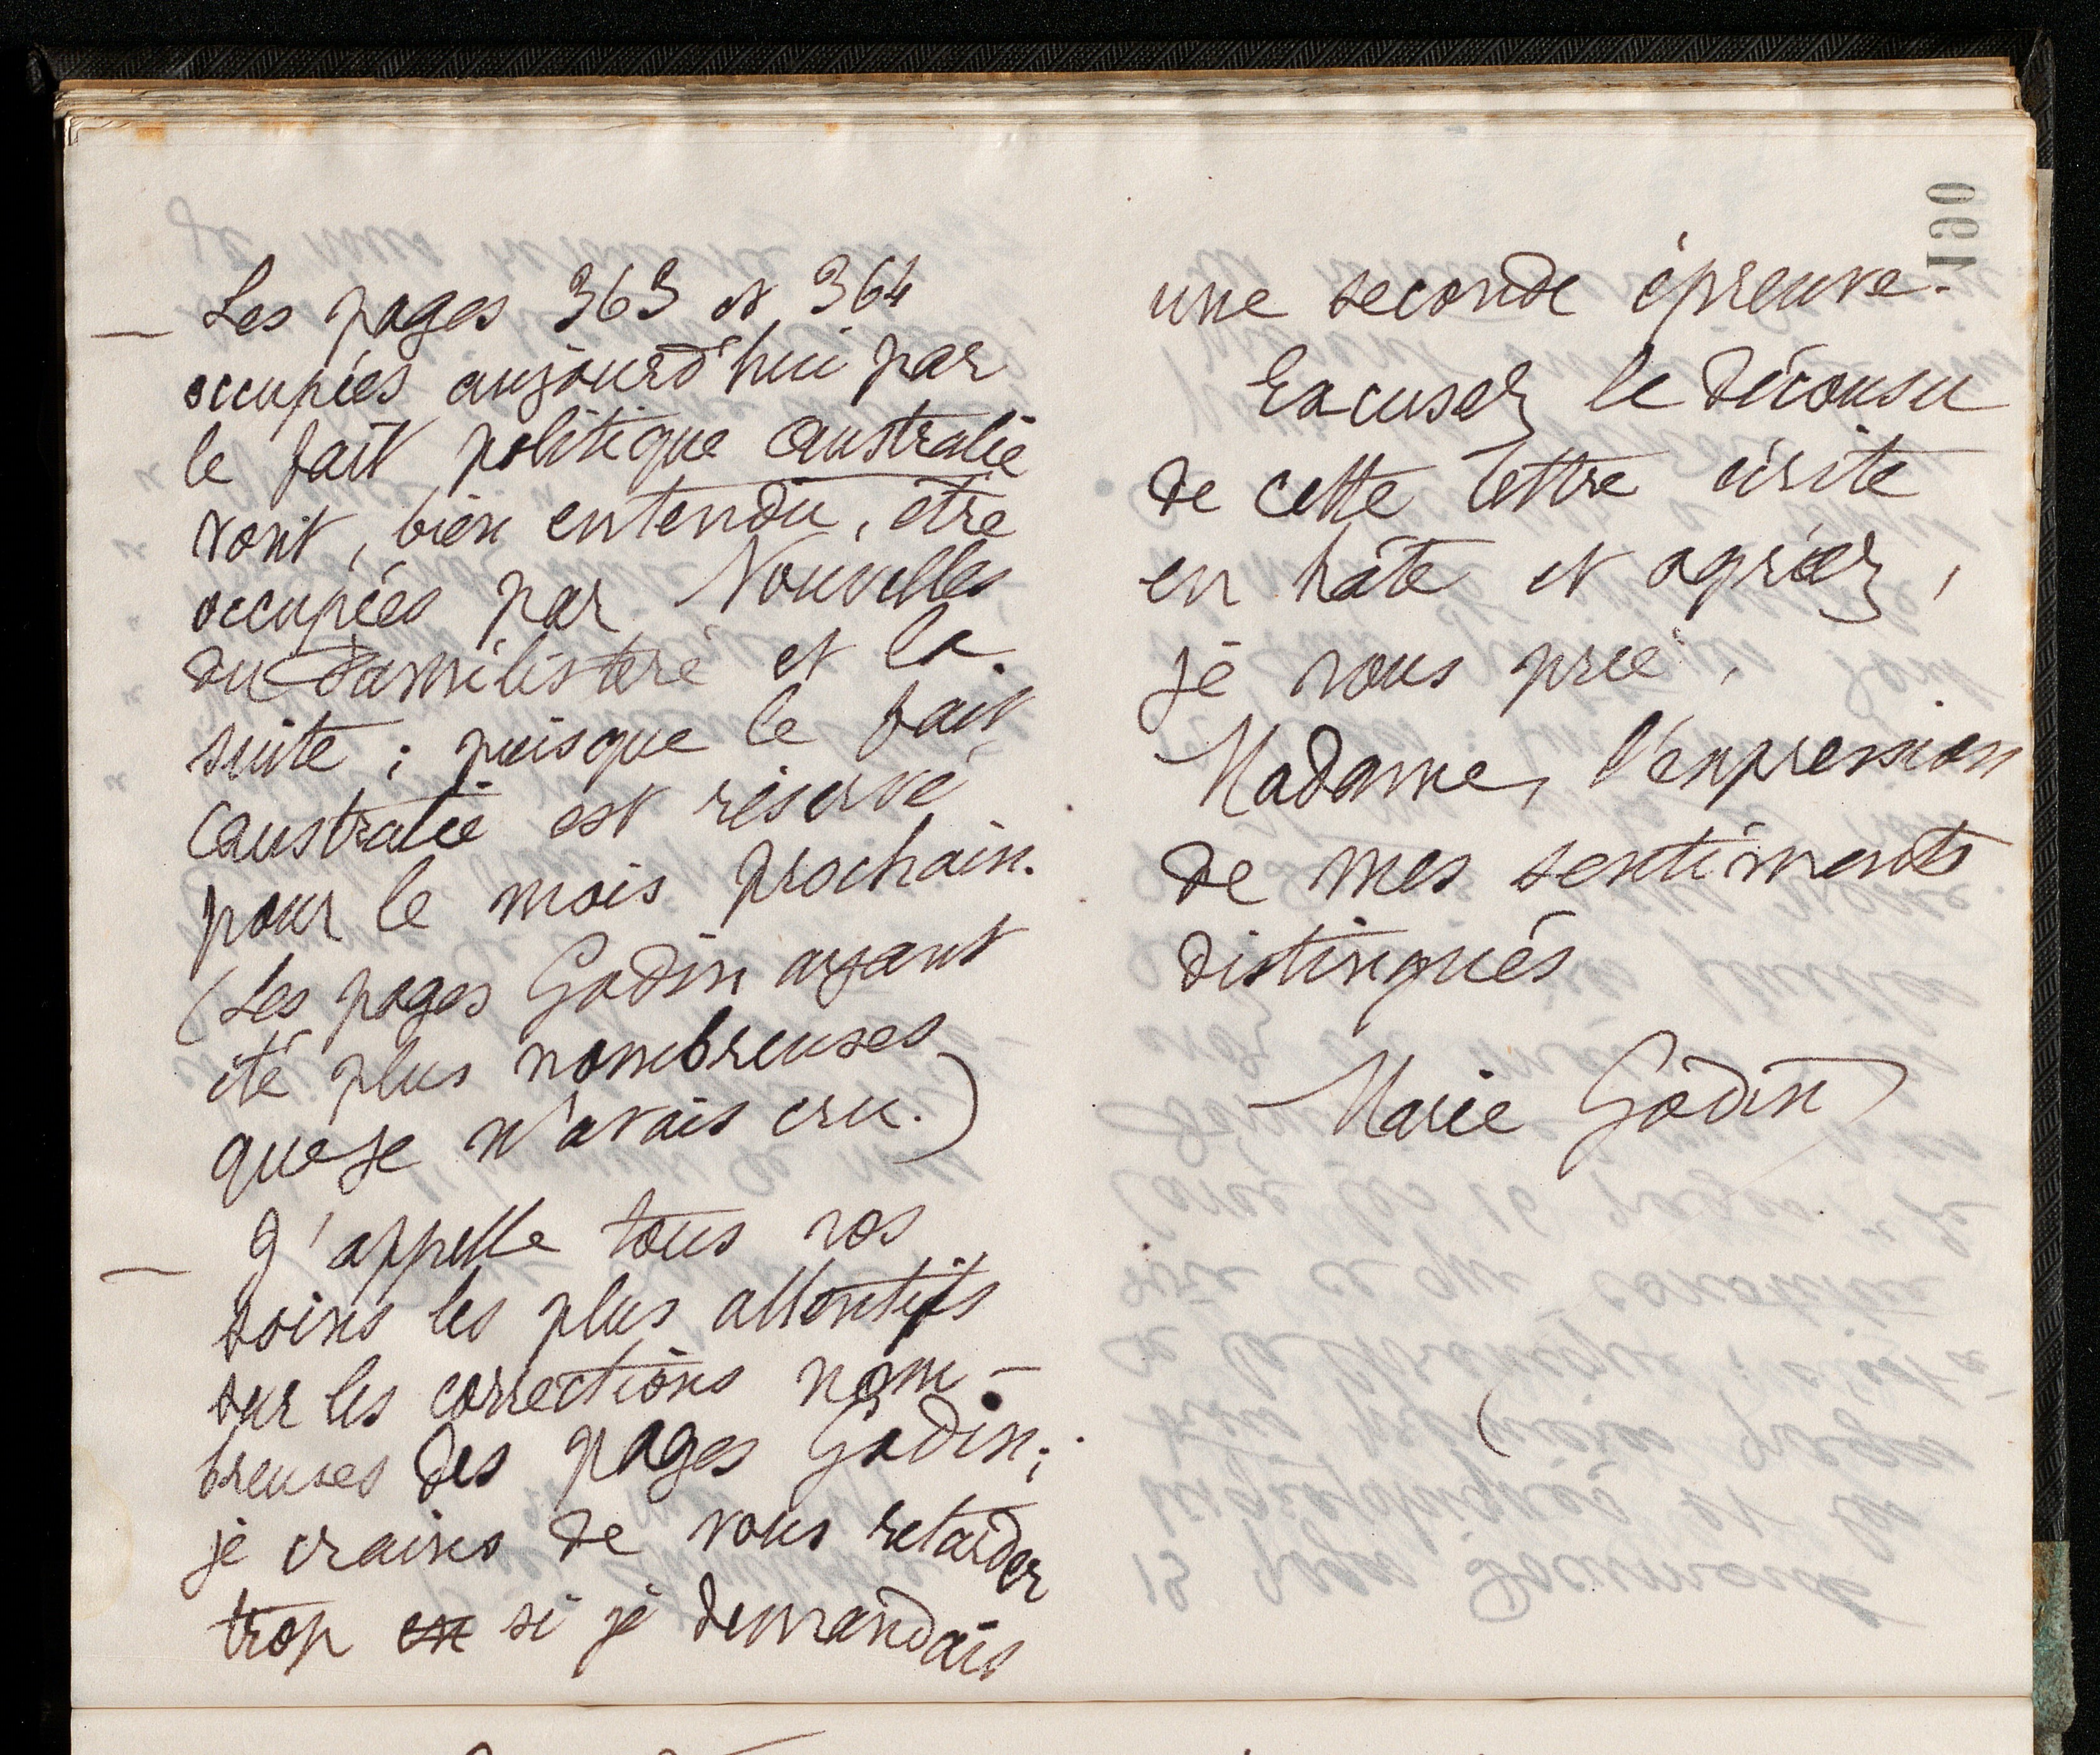 — Les pages 363 et 364
occupées aujourd'hui par
le fait politique Australie
vont, bien entendu, être
occupées par Nouvelles
du Familistère et la
suite ; puisque le fait
Australie est réservé
pour le mois prochain.
(Les pages Godin ayant
été plus nombreuses
que je n'avais cru.)
— J'appelle tous vos
soins les plus attentifs
sur les corrections nom-
breuses des pages Godin ;
je crains de vous retarder
trop en si je demandais
une seconde épreuve.
Excusez le décousu
de cette lettre écrite
en hâte et agréez,
je vous prie,
Madame, l'expression
de mes sentiments
distingués
Marie Godin
190